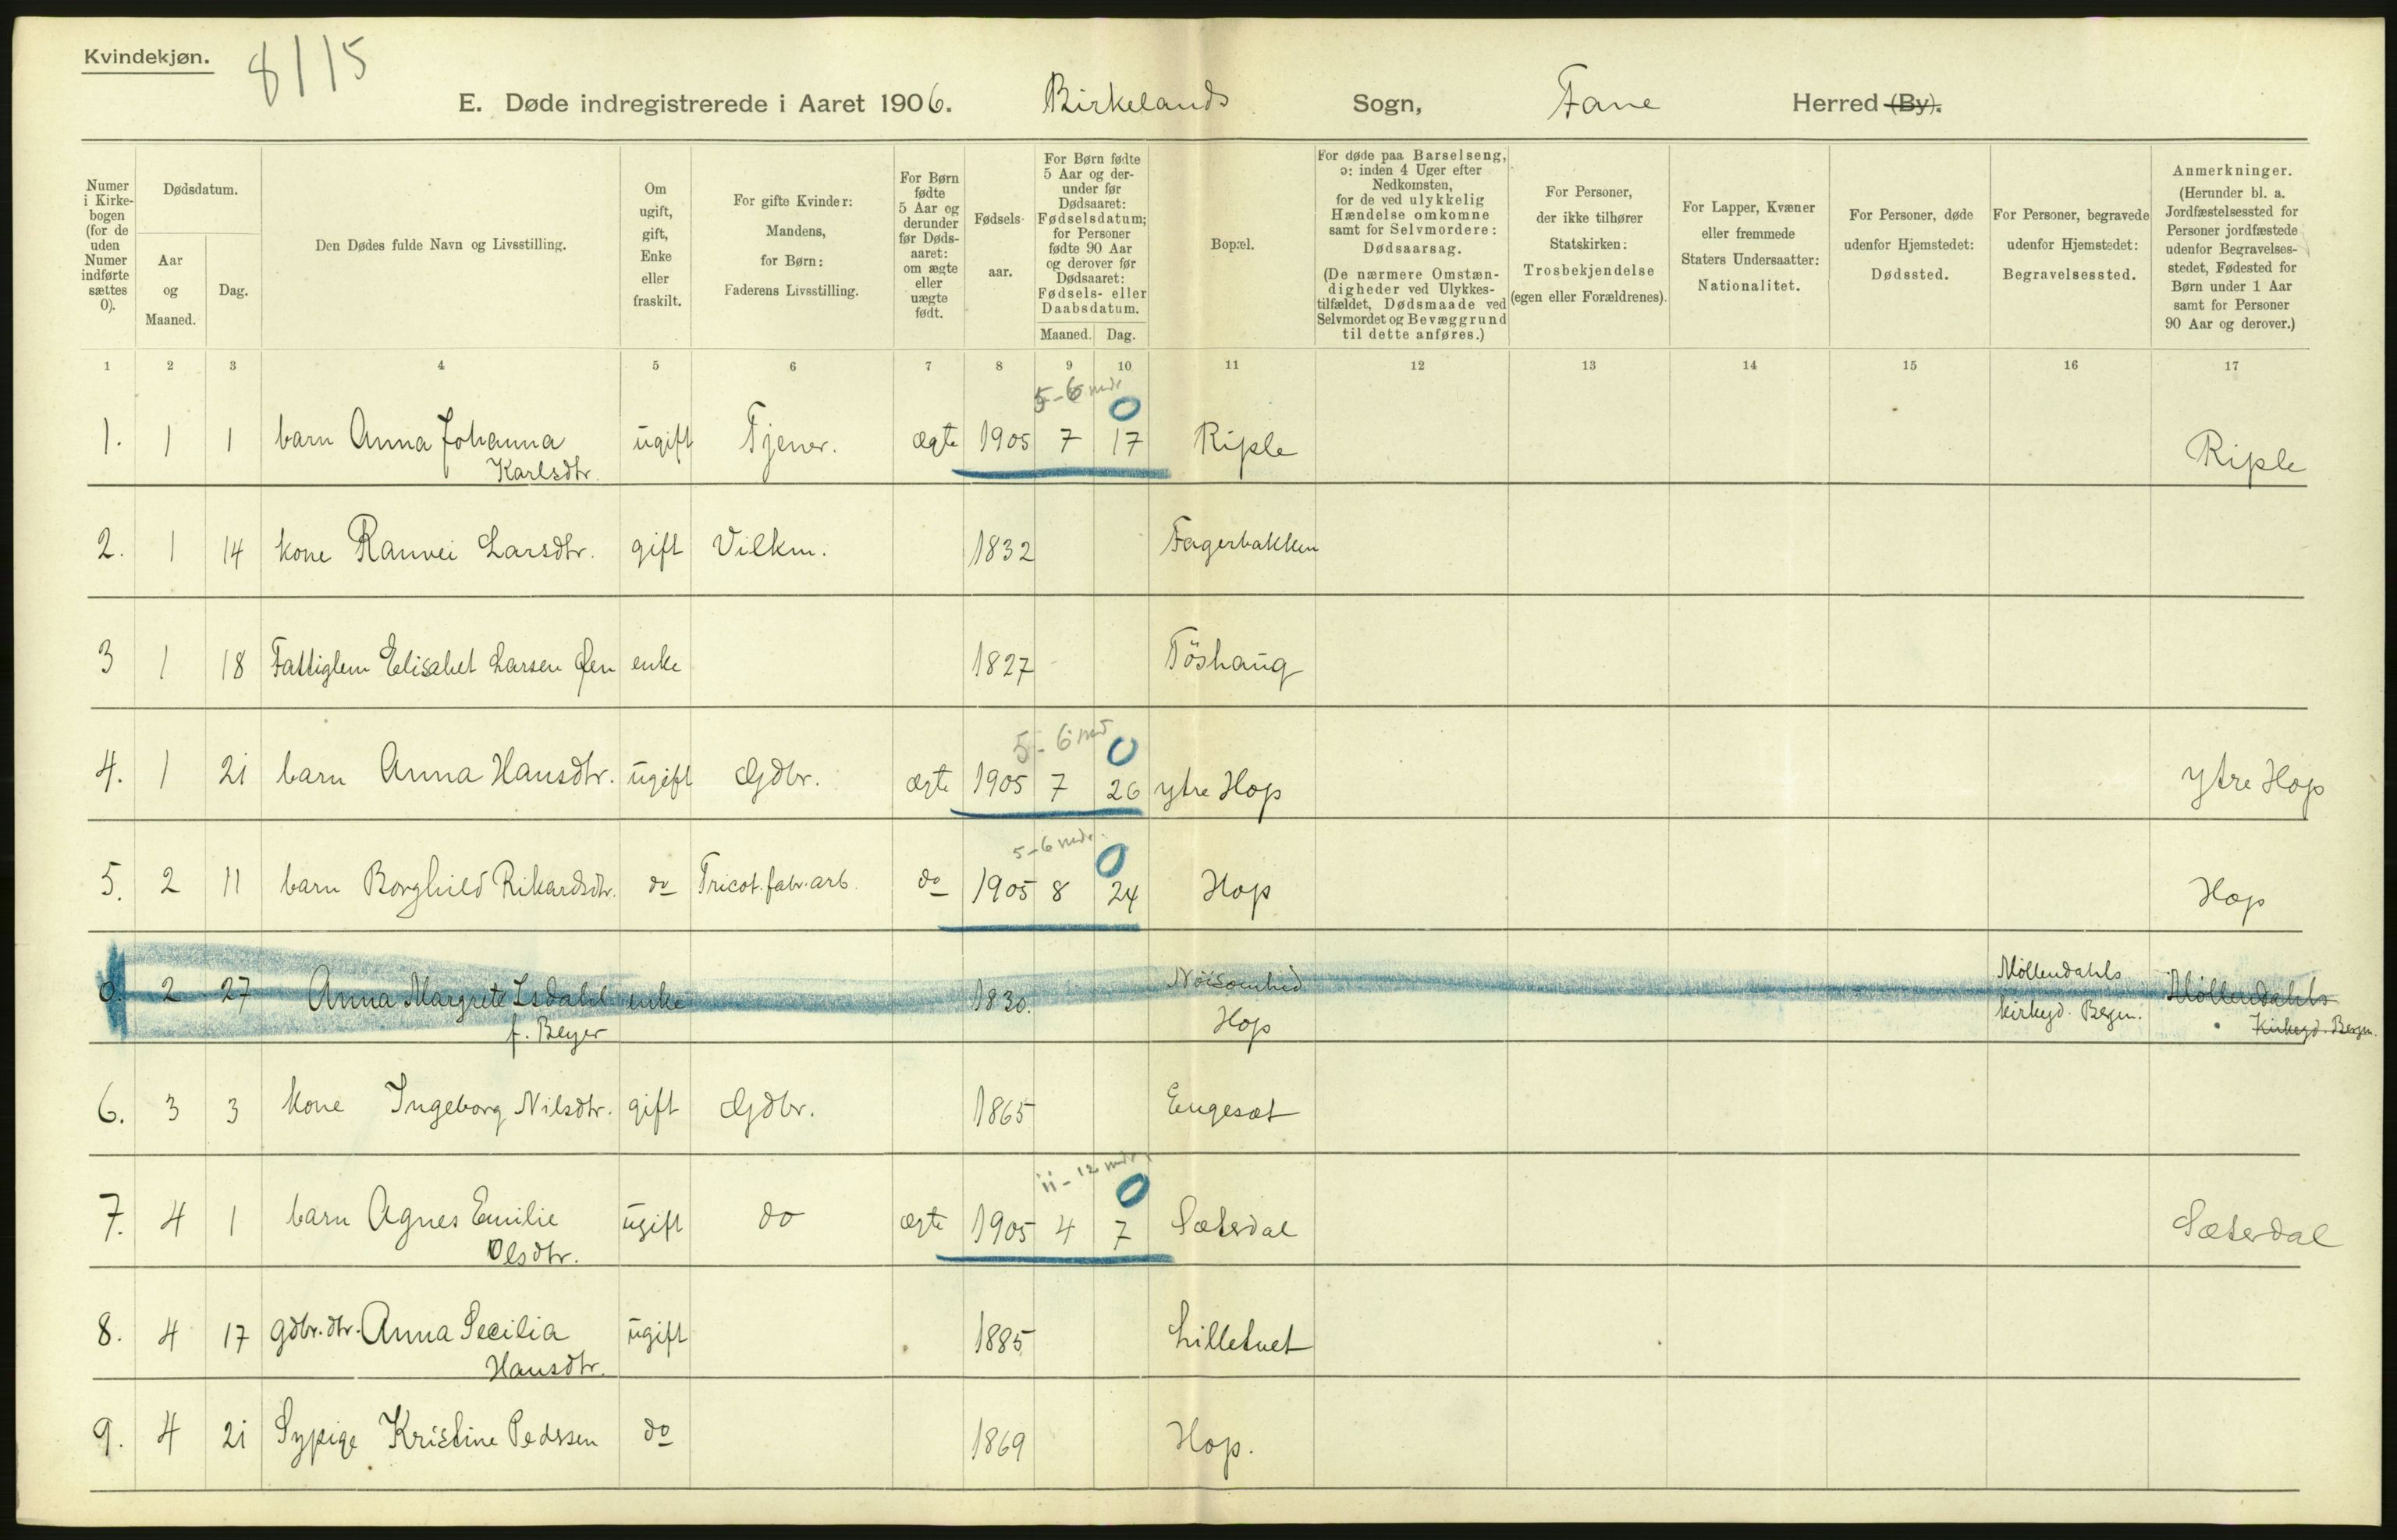 Kvindekjøn.
8/15
E. Døde indregistrerede i Aaret 1906. Birkelands Sogn, Fane Herred (By).
Numer i Kirkebogen (for de uden Numer indførte sættes 0).
Dødsdatum.
Aar og Maaned.
Dag.
Den Dødes fulde Navn og Livsstilling.
Om ugift, gift, Enke eller fraskilt.
For gifte Kvinder: Mandens, for Børn: Faderens Livsstilling.
For Børn fødte 5 Aar og derunder før Dødsaaret: om ægte eller uægte født.
Fødselsaar.
For Børn fødte 5 Aar og derunder før Dødsaaret: Fødselsdatum; for Personer fødte 90 Aar og derover før Dødsaaret: Fødsels- eller Daabsdatum.
Maaned. Dag.
Bopæl.
For døde paa Barselseng, ɔ: inden 4 Uger efter Nedkomsten, for de ved ulykkelig Hændelse omkomne samt for Selvmordere: Dødsaarsag.
(De nærmere Omstændigheder ved Ulykkestilfældet, Dødsmaade ved Selvmordet og Bevæggrund til dette anføres.)
For Personer, der ikke tilhører Statskirken: Trosbekjendelse (egen eller Forældrenes).
For Lapper, Kvæner eller fremmede Staters Undersaatter: Nationalitet.
For Personer, døde udenfor Hjemstedet: Dødssted.
For Personer, begravede udenfor Hjemstedet: Begravelsessted.
Anmerkninger.
(Herunder bl. a. Jordfæstelsessted for Personer jordfæstede udenfor Begravelsesstedet, Fødested for Børn under 1 Aar samt for Personer 90 Aar og derover.)
1 2 3 4 5 6 7 8 9 10 11 12 13 14 15 16 17
5-6 mdr 0
1. 1 1 barn Anna Johanna ugift Tjener. ægte 1905 7 17 Riple Riple
Karlsdtr.
2. 1 14 kone Ranvei Larsdtr. gift Vilkm. 1832 Fagerbakken
3 1 18 Fattiglem Elisabet Larsen enke 1827 Töshaug
5-6 md 0
4. 1 21 barn Anna Hansdtr. ugift Gdbr. ægte 1905 7 26 ytre Hop ytre Hop
5-6 mdr. 0
5. 2 11 barn Borghild Rikardsdtr. do Tricot.fabr.arb. do 1905 8 24 Hop Hop
0. 2 27 Anna Margrete Isdahl enke 1830. Nöisomhed Möllendahls Möllendahls
f. Beyer Hop kirkegd. Bergen. Kirkegd. Bergen.
6. 3 3 kone Ingeborg Nilsdtr. gift Gdbr. 1865 Engesæt
11-12 mdr. 0
7. 4 1 barn Agnes Emilie ugift do ægte 1905 4 7 Sæterdal Sæterdal
Olsdtr.
8. 4 17 gdbr.dtr. Anna Secilia ugift 1885 Lilletvet
Hansdtr.
9. 4 21 Sypige Kristine Pedersen do 1869 Hop.